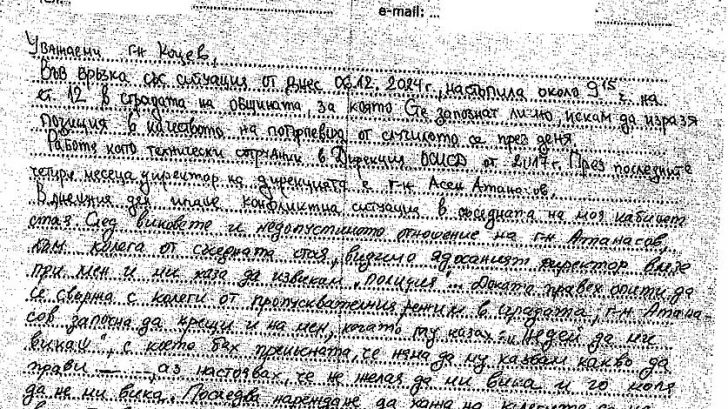 e-mail: ...
Уважаеми г-н Коцев,
Във връзка със ситуация от днес 06.12.2024 г., настъпила около 9 15 ч. на
ет. 12 в сградата на общината, за която сте запознат лично, искам да изразя
позиция в качеството на потърпевша от случилото се през деня.
Работя като технически сътрудник в Дирекция от 2017 г. През последните
четири месеца директор на дирекцията е г-н Асен Атанасов.
В днешния ден имаше конфликтна ситуация в съседната на моя кабинет
стая. След виковете и недопустимото отношение на г-н Атанасов,
към колега от съседната стая, видимо ядосаният директор влезе
при мен и ми каза да извикам "полиция". Докато правех опити да
се свържа с колеги от пропускателния режим в сградата, г-н Атана-
сов започна да крещи и на мен, когато му казах: "Недей да ми
викаш", с което бях прекъсната, че няма да му казвам какво да
прави, аз настоявах, че не желая да ми вика и го моля
да не ми вика. Последва нареждане да ходя на